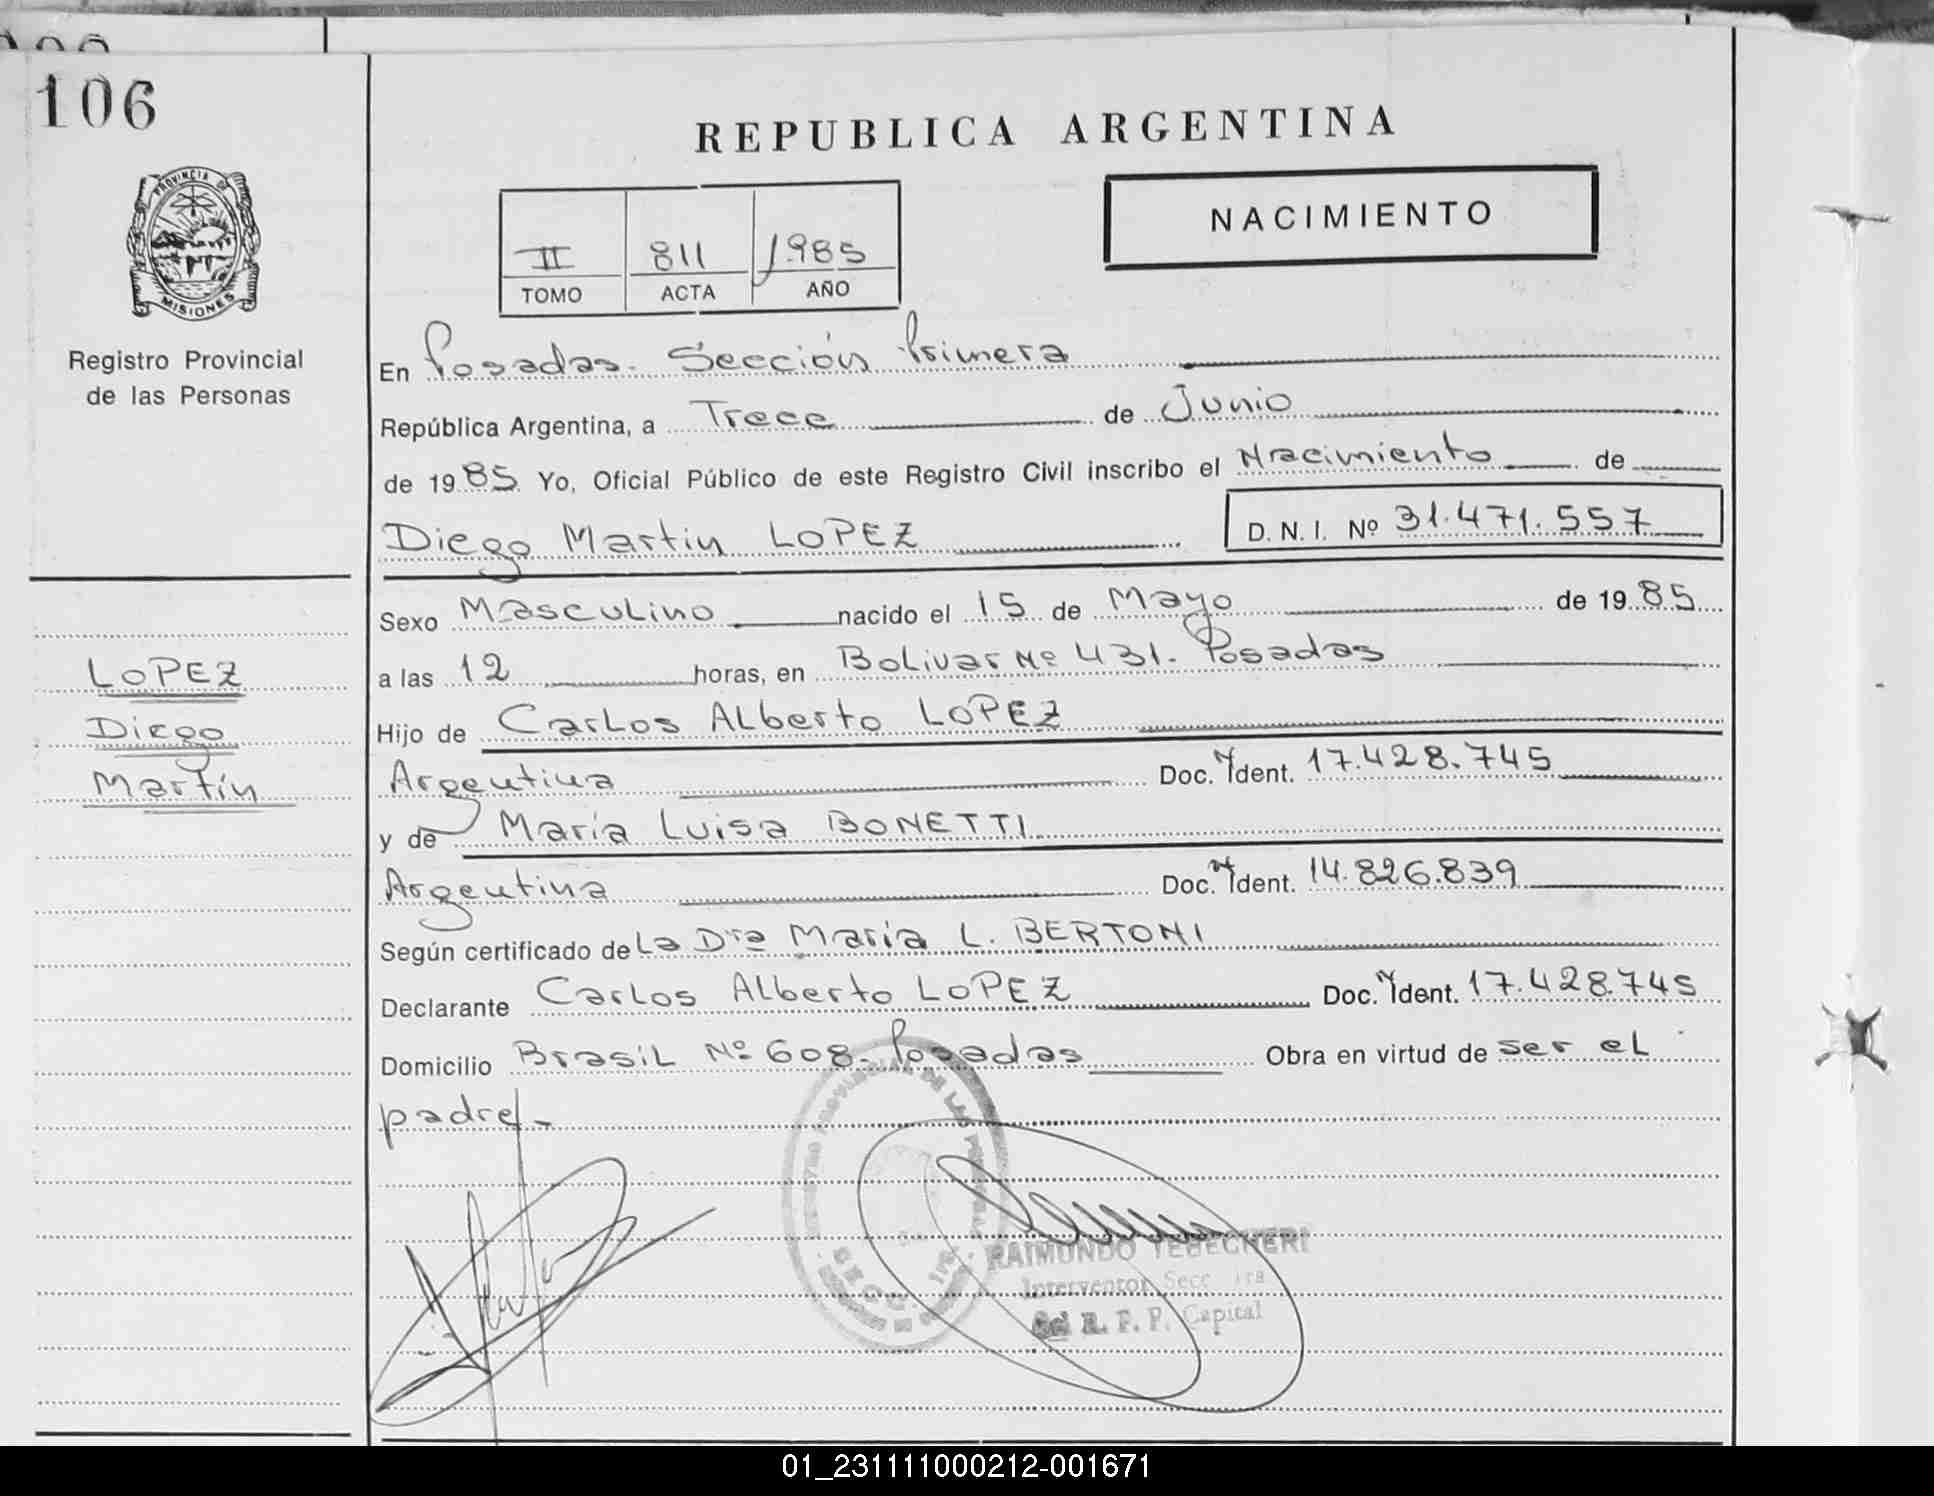 106
REPUBLICA ARGENTINA
PROVINCIA DE
MISIONES
Registro Provincial
de las Personas
II 811 1.985
TOMO ACTA AÑO
NACIMIENTO
En Posadas. Sección Primera
República Argentina, a Trece de Junio
de 1985 Yo, Oficial Público de este Registro Civil inscribo el Nacimiento de
Diego Martin LOPEZ D. N. I. Nº 31.471.557
Sexo Masculino nacido el 15 de Mayo de 1985
a las 12 horas, en Bolivar Nº 431. Posadas
Hijo de Carlos Alberto LOPEZ
Argentina Doc. Ident. 17.428.745
y de María Luisa BONETTI
Argentina Doc. Ident. 14.826.839
Según certificado de La Dra María L. BERTONI
Declarante Carlos Alberto LOPEZ Doc. Ident. 17.428.745
Domicilio Brasil Nº 608. Posadas Obra en virtud de ser el
padre.-
LOPEZ
Diego
Martín
REGISTRO PROVINCIAL DE LAS PERSONAS
SECC. 1ra
RAIMUNDO TEBECHERI
Interventor Secc 1ra
del R. P. P. Capital
01_231111000212-001671